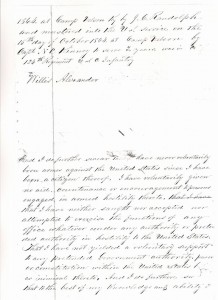 1864 at Camp by J. C. Randolph
and mustered into the U.S. service on the
15th day of October 1864 at Camp
Capt. to serve in
124th Regiment U.S. C. Infantry
Willis Alexander
And I do further swear that I have never voluntarily
borne arms against the United States since I have
been a citizen thereof; I have voluntarily given
no aid, countenance or encouragement to persons
engaged in armed hostility thereto; that I have
neither sought nor accepted nor
attempted to exercise the functions of any
office whatever under any authority or pretended
authority in hostility to the United States;
That I have not yielded a voluntary support to
any pretended Government authority, power
or constitution within the United States
inimical thereto; And I do further
that to the best of my Knowledge and ability I